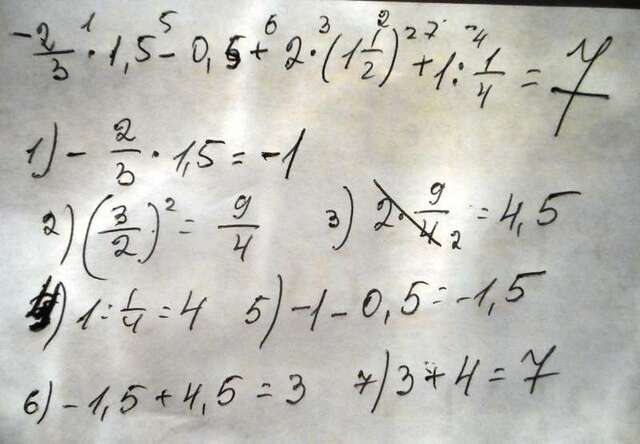 -2/3 · 1,5 - 0,5 + 2 · (1 1/2)² + 1 : 1/4 = 7
1) - 2/3 · 1,5 = -1
2) (3/2)² = 9/4 3) 2 · 9/4 2 = 4,5
4) 1 : 1/4 = 4 5) -1 - 0,5 = -1,5
6) -1,5 + 4,5 = 3 7) 3 + 4 = 7